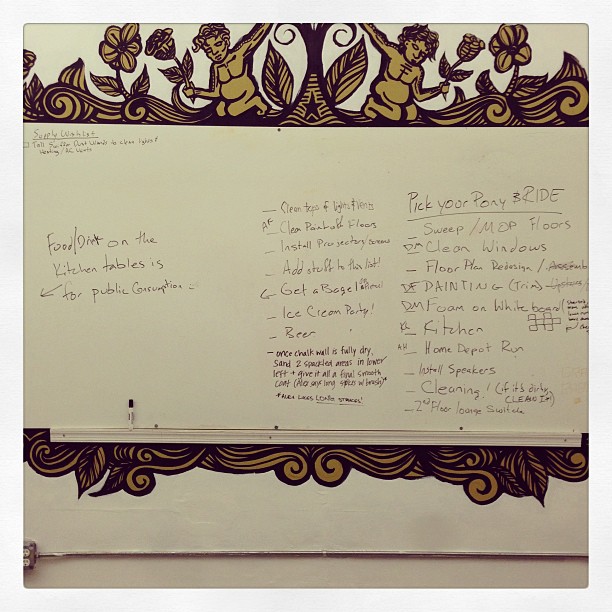 Supply Wishlist
Tall Swiffer Dust Wands to clean lights/
Heating/AC Vents
Food/Drink on the
Kitchen tables is
for public Consumption
Clean tops of lights/vents
AF Clean Paint off Floors
Install Projectors/screens
Add stuff to this list!
G Get a Bagel
Ice Cream Party!
Beer
- once chalk wall is fully dry,
sand 2 spackled areas in lower
left + give it all a final smooth
coat (Alex says long strokes w/brush)*
*ALEX LIKES LONG STROKES!
Pick your Pony & RIDE
Sweep/MOP Floors
DM Clean Windows
Floor Plan Redesign/
PAINTING (Trim)
DM Foam on White board
Kitchen
AH Home Depot Run
Install Speakers
Cleaning! (if it's dirty,
CLEAN IT)
2nd Floor lounge Switch